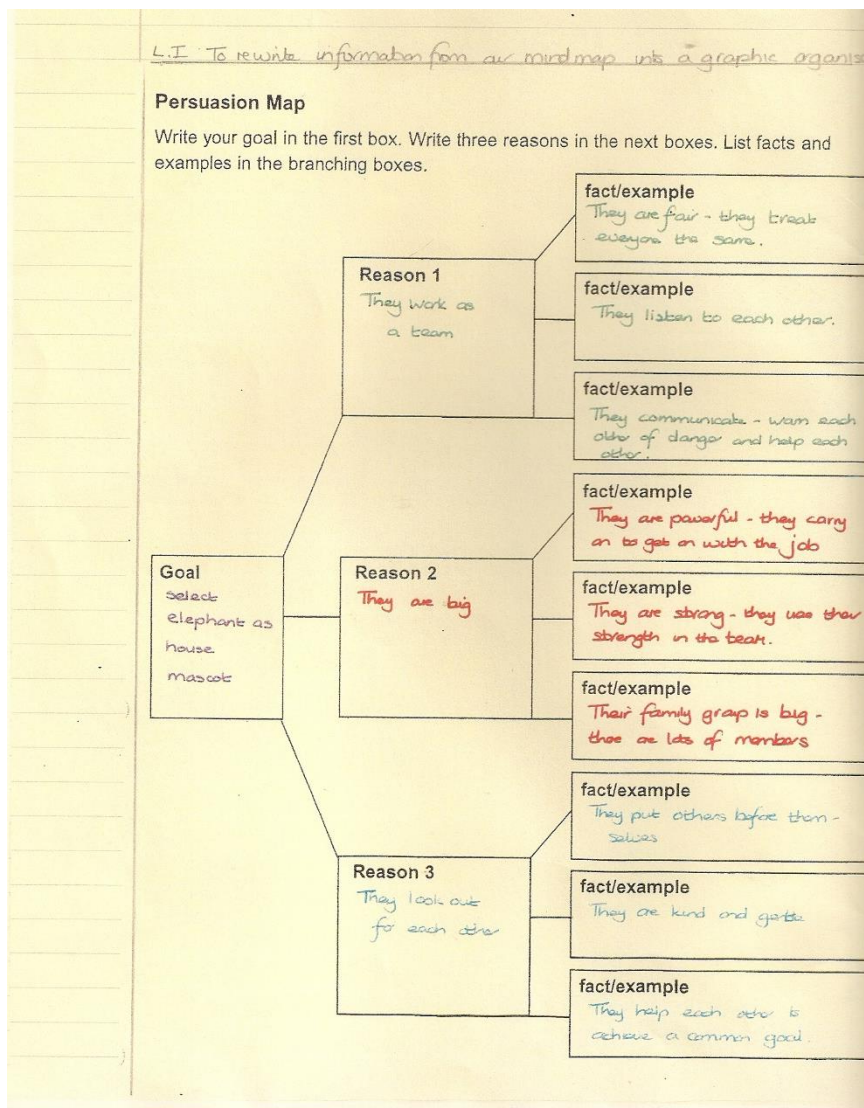 L.I To rewrite information from our mind map into a graphic organis
Persuasion Map
Write your goal in the first box. Write three reasons in the next boxes. List facts and
examples in the branching boxes.
Goal
select
elephant as
house
mascot
Reason 1
They work as
a team
fact/example
They are fair - they treat
everyone the same.
fact/example
They listen to each other.
fact/example
They communicate - warn each
other of danger and help each
other.
Reason 2
They are big
fact/example
They are powerful - they carry
on to get on with the job
fact/example
They are strong - they use their
strength in the team.
fact/example
Their family group is big -
there are lots of members
Reason 3
They look out
for each other
fact/example
They put others before them -
selves
fact/example
They are kind and gentle
fact/example
They help each other to
achieve a common goal.